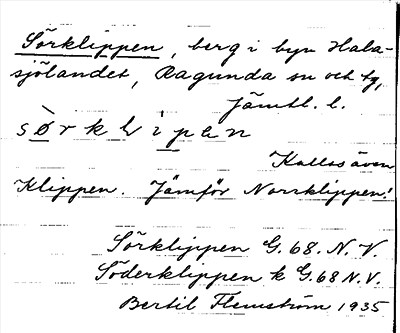 Sörklippen, berg i byn Hala-
sjölandet, Ragunda sn och tg,
Jämtl. l.
sø̀rkḷipen
Kallas även
Klippen. Jämför Norrklippen!
Sörklippen G. 68. N. V.
Söderklippen k G. 68 N. V.
Bertil Flemström 1935